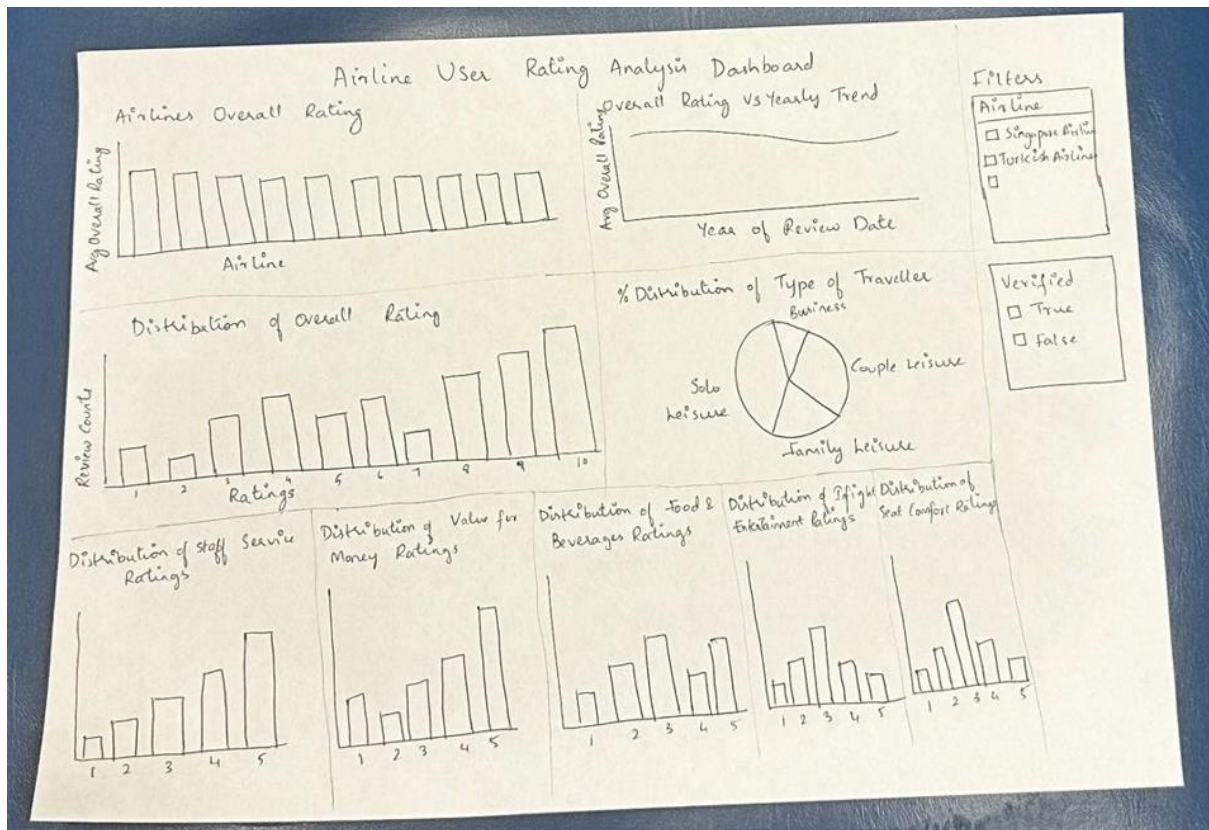 Airline User Rating Analysis Dashboard
Airlines Overall Rating
Avg Overall Rating
Airline
Overall Rating Vs Yearly Trend
Avg Overall Rating
Year of Review Date
Filters
Airline
Singapore Airlin
Turkish Airline
Verified
True
False
Distribution of Overall Rating
Review Counts
1 2 3 4 5 6 7 8 9 10
Ratings
% Distribution of Type of Traveller
Business
Couple Leisure
Solo
Leisure
Family Leisure
Distribution of Staff Service
Ratings
1 2 3 4 5
Distribution of Value for
Money Ratings
1 2 3 4 5
Distribution of Food &
Beverages Ratings
1 2 3 4 5
Distribution of Ifight
Entertaiment Ratings
1 2 3 4 5
Distribution of
Seat Comfort Ratings
1 2 3 4 5